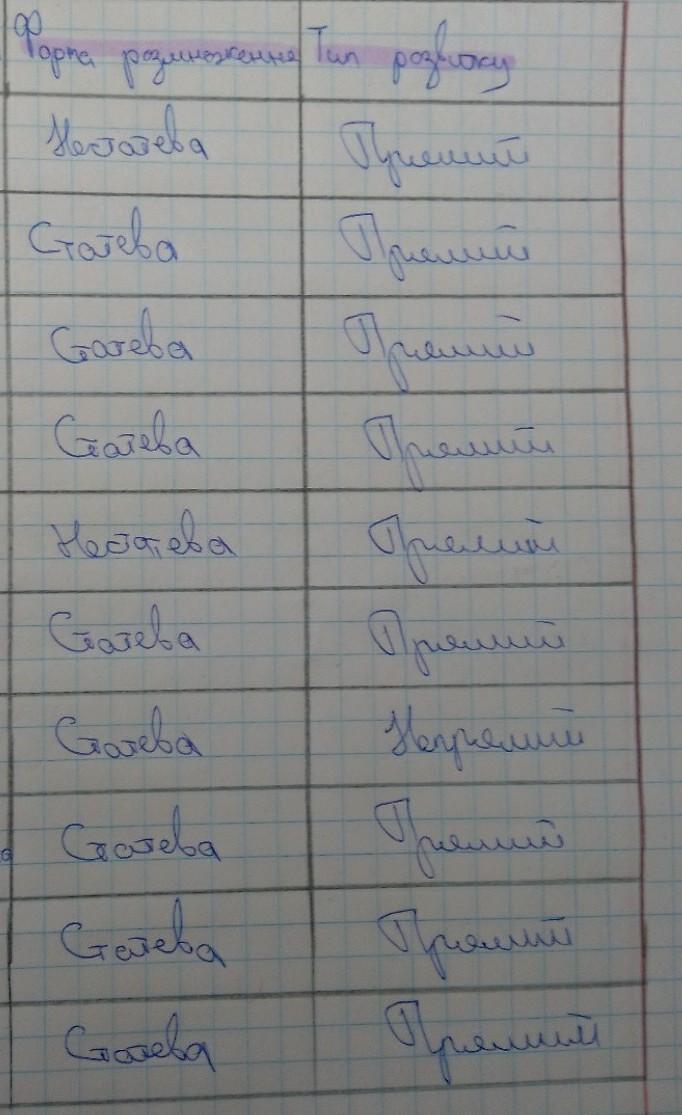 Форма розмноження Тип розвитку
Нестатева Прямий
Статева Прямий
Статева Прямий
Статева Прямий
Нестатева Прямий
Статева Прямий
Статева Непрямий
Статева Прямий
Статева Прямий
Статева Прямий